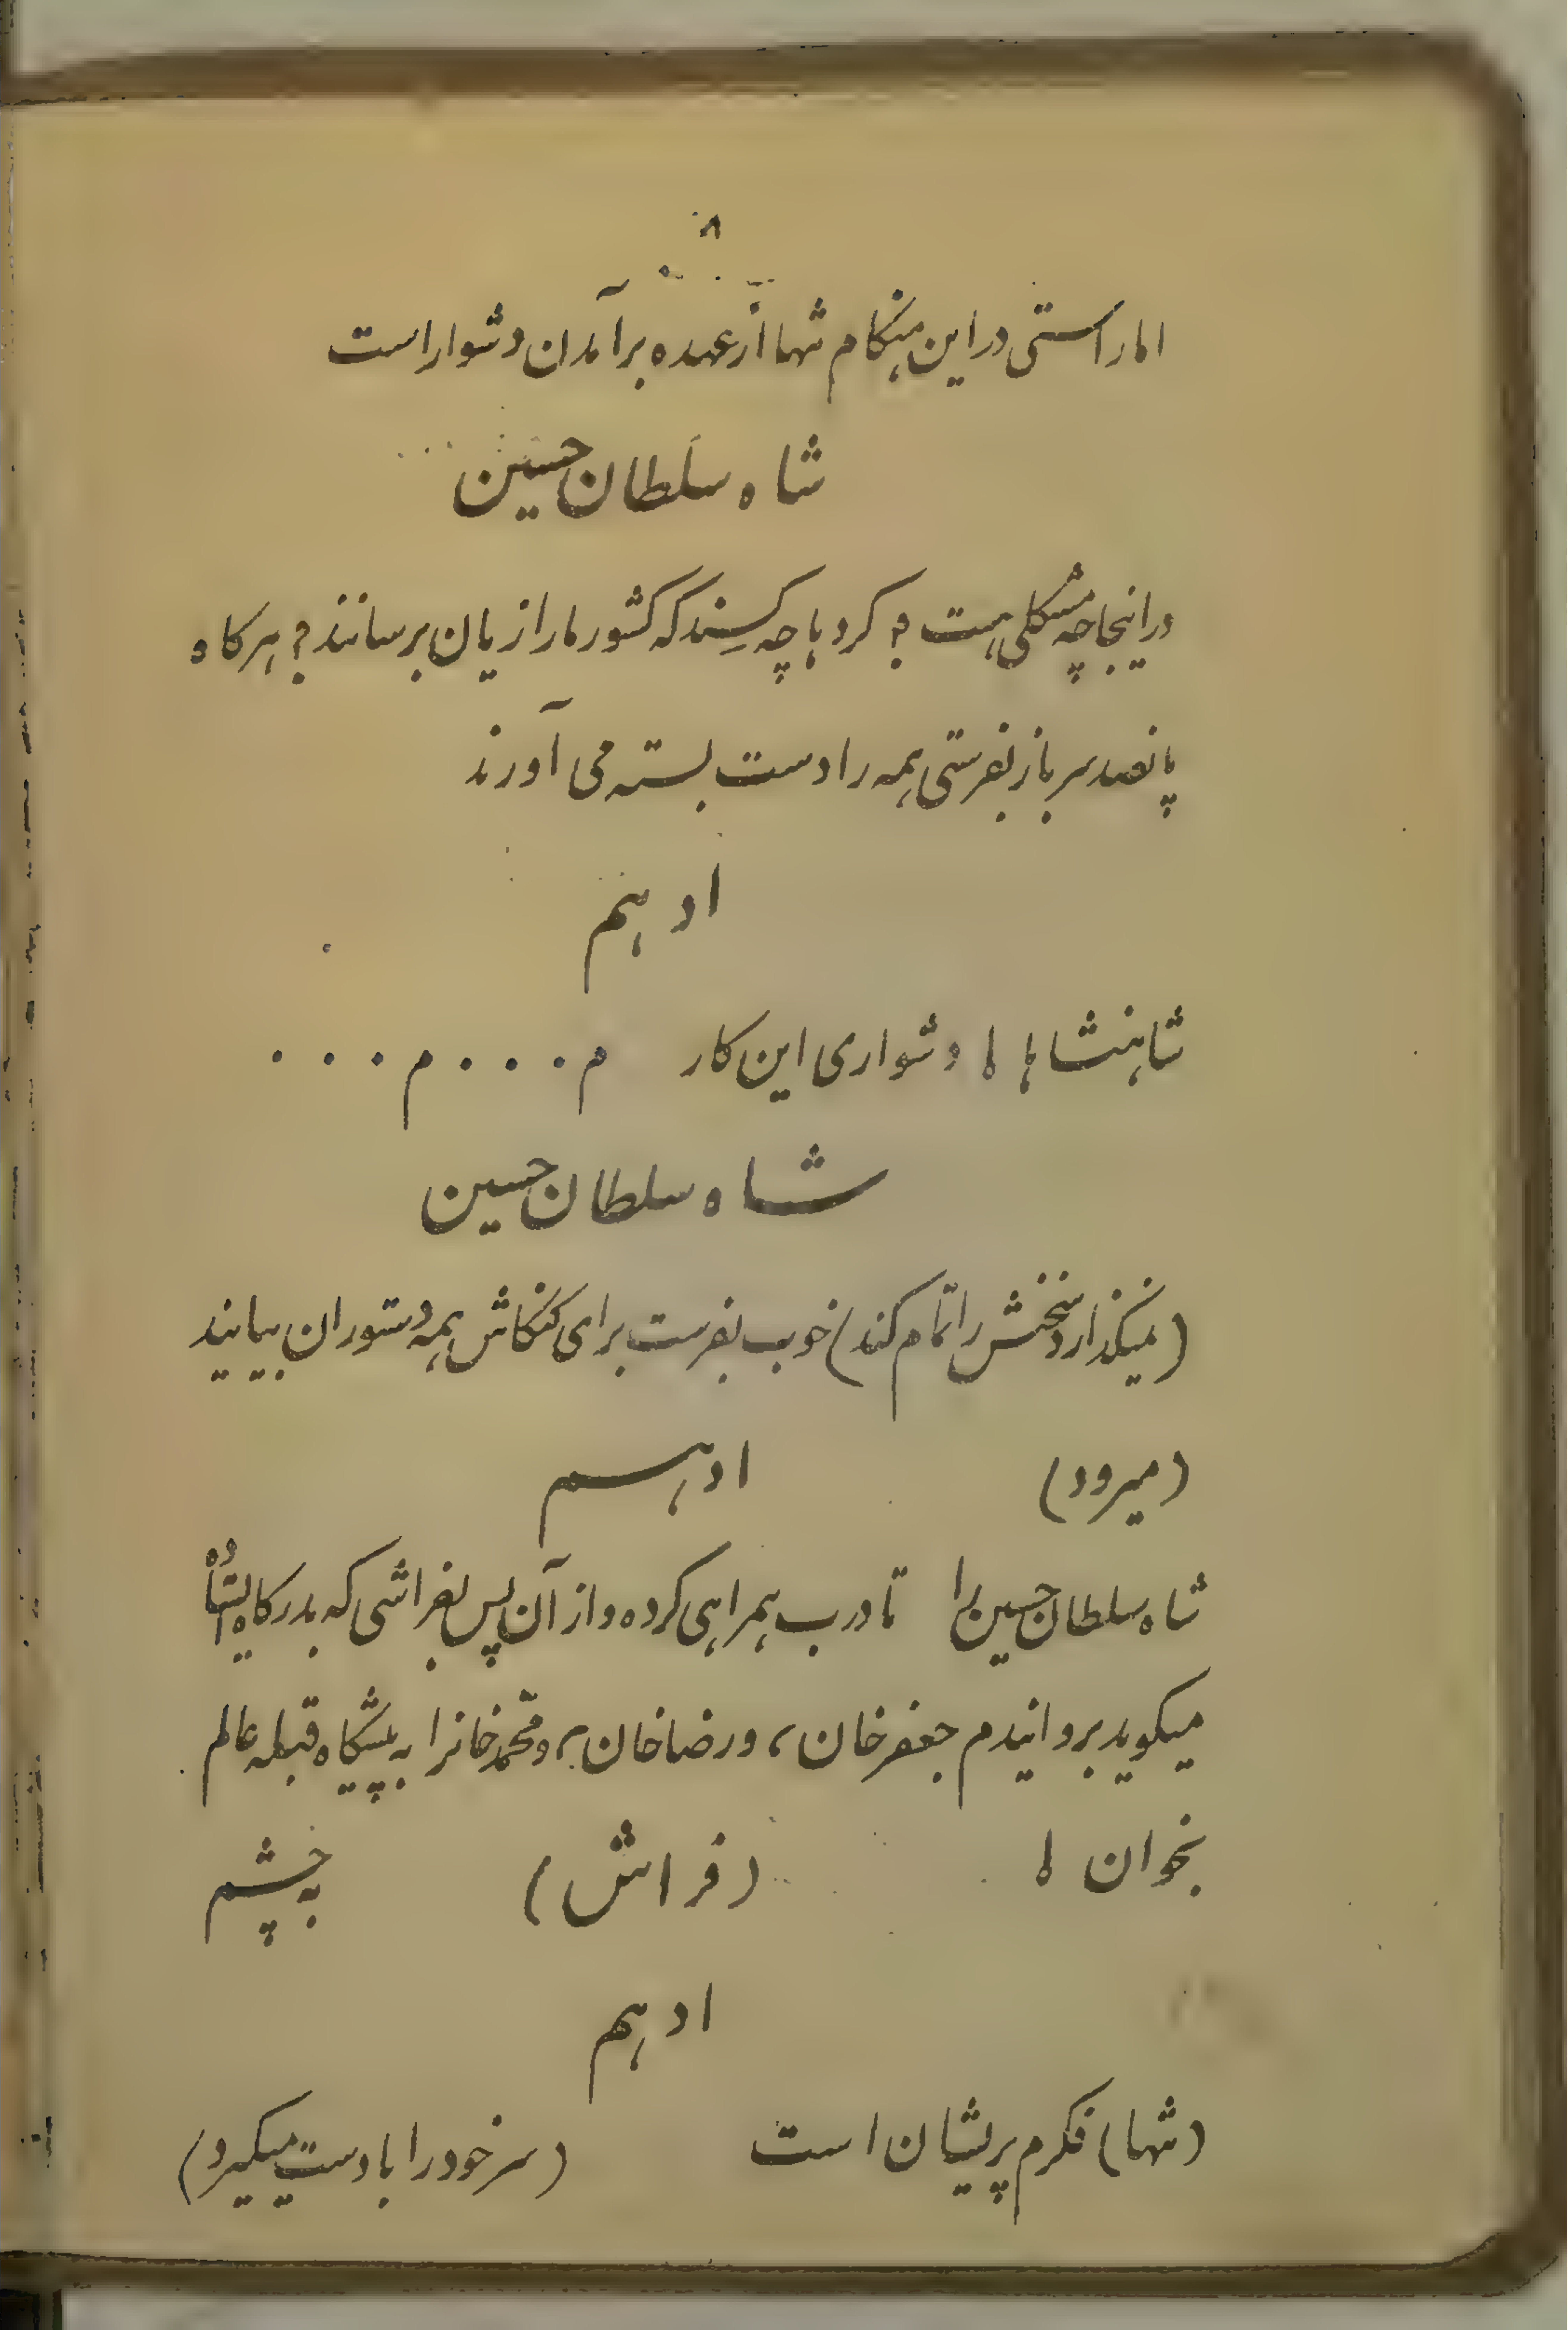 ۸
اما راستی در این هنکام تنها از عهده برآمدن دشوار است
شاه سلطان حسین
در اینجا چه مشکلی هست ؟ کردها چه کسند که کشور ما را زیان برسانند ؟ هرکاه
پانصد سرباز بفرستی همه را دست بسته می آورند
ادهم
شاهنشاها ! دشواری این کار م . . . م . . .
شاه سلطان حسین
(نمیکذارد سخنش را تمام کند) خوب بفرست برای کنکاش همه دستوران بیایند
(میرود) ادهم
شاه سلطان حسین را تا درب همراهی کرده و از آن پس بفراشی که بدرکاه
میکوید برو ایندم جعفرخان، و رضاخان، و محمدخانرا به پیشکاه قبله عالم
بخوان ! (فراش) به چشم
ادهم
(تنها) فکرم پریشان است (سر خود را با دست میکیرد)